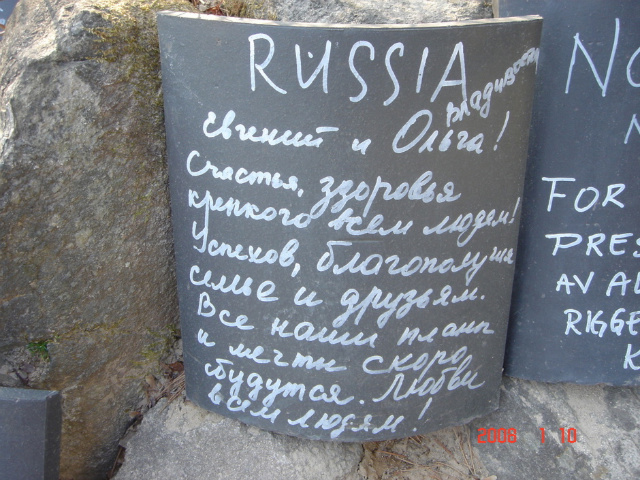 RUSSIA
Владивосток
Евгений и Ольга!
Счастья, здоровья
крепкого всем людям!
Успехов, благополучия
семье и друзьям.
Все наши планы
и мечты скоро
сбудутся. Любви
всем людям!
NO
N
FOR
PRES
AV AL
RIGGE
K
2008 1 10